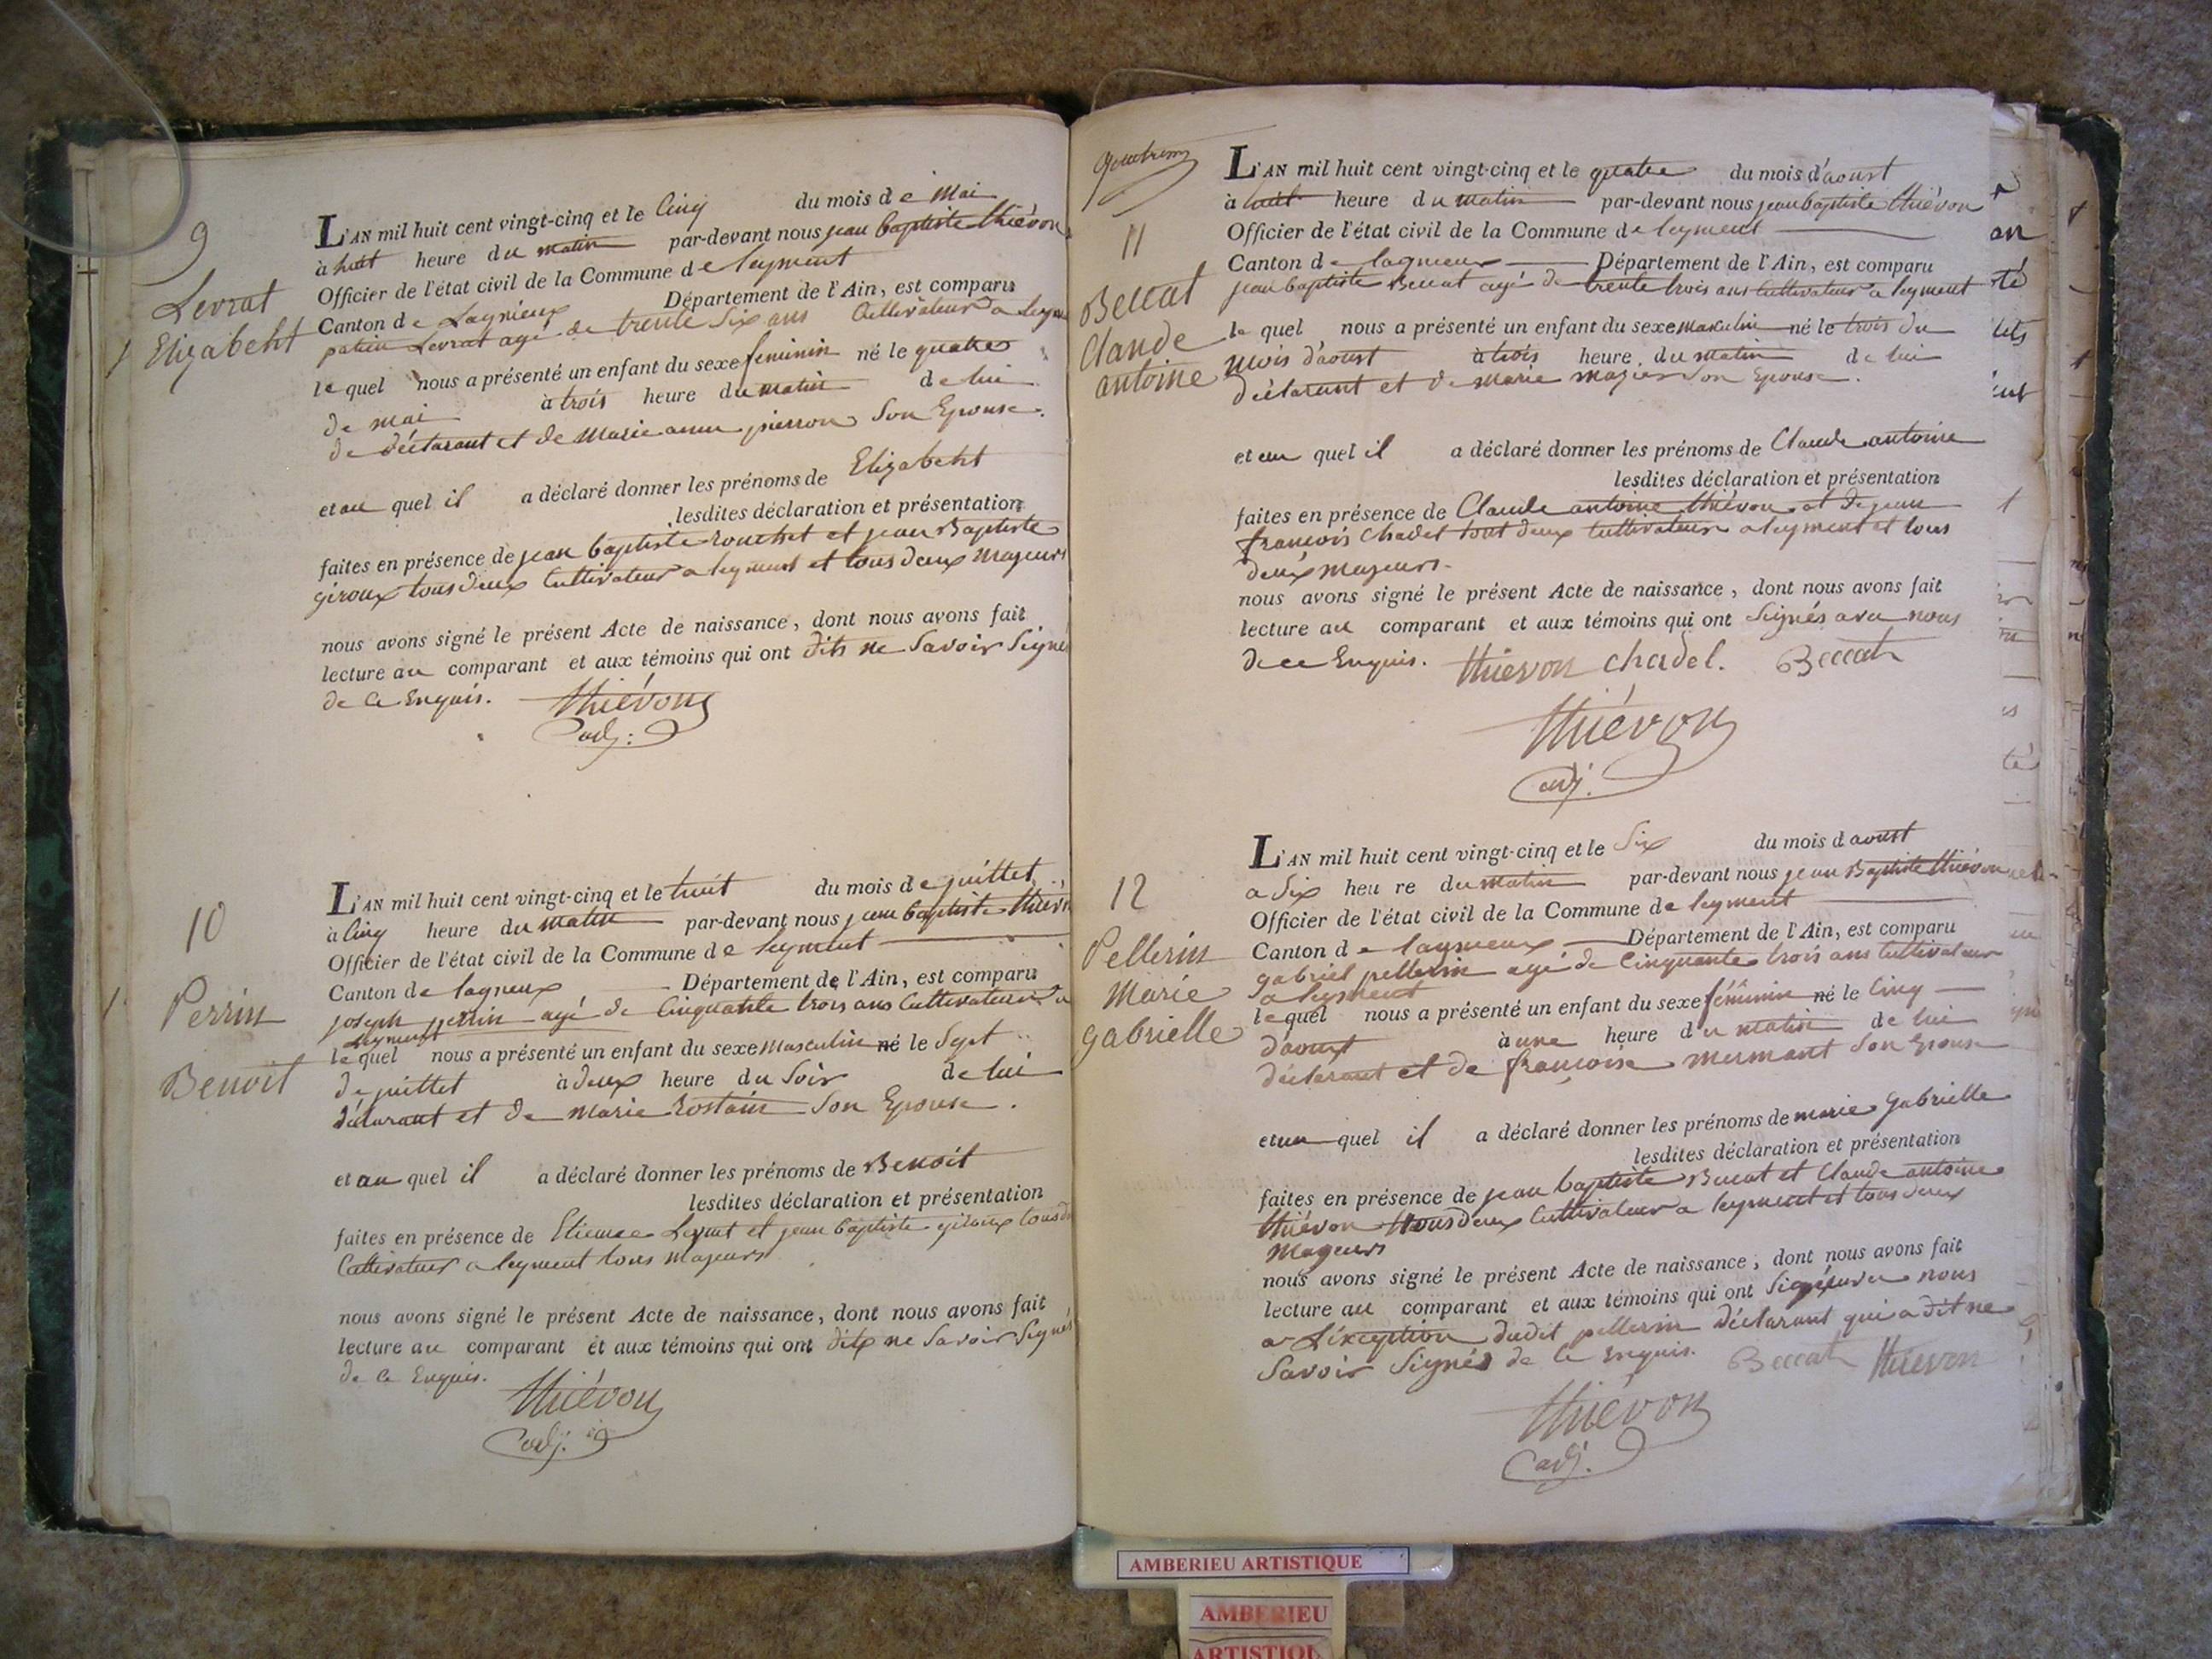 9
Levrat
Elizabeht
L'AN mil huit cent vingt-cinq et le Cinq du mois de Mai
à huit heure du matin par-devant nous jean baptiste thiévon
Officier de l'état civil de la Commune de leyment
Canton de Lagnieux Département de l'Ain, est comparu
Levrat agé de trente Six ans Cultivateur a
lequel nous a présenté un enfant du sexe feminin né le quatre
de mai à trois heure du matin de lui
de déclarant et de Marie anne pierron Son Epouse.
et au quel il a déclaré donner les prénoms de Elizabeht
lesdites déclaration et présentation
faites en présence de jean baptiste rouchet et jean Baptiste
giroux tous deux Cultivateur a leyment et tous deux Majeurs
nous avons signé le présent Acte de naissance, dont nous avons fait
lecture au comparant et aux témoins qui ont dits ne Savoir Signer
de ce Enquis. thiévon
adj:
10
Perrin
Benoit
L'AN mil huit cent vingt-cinq et le huit du mois de juillet
à Cinq heure du matin par-devant nous jean baptiste thiévon
Officier de l'état civil de la Commune de leyment
Canton de lagneux Département de l'Ain, est comparu
joseph perrin agé de Cinquante trois ans Cultivateur a
leyment
lequel nous a présenté un enfant du sexe masculin né le Sept
de juillet à deux heure du Soir de lui
déclarant et de Marie rostain Son Epouse.
et au quel il a déclaré donner les prénoms de Benoit
lesdites déclaration et présentation
faites en présence de Etienne Levrat et jean baptiste giroux tous
Cultivateur a leyment tous majeurs
nous avons signé le présent Acte de naissance, dont nous avons fait
lecture au comparant et aux témoins qui ont dits ne Savoir Signer
de ce Enquis.
thiévon
adj.
11
Beccat
Claude
antoine
L'AN mil huit cent vingt-cinq et le quatre du mois d'aoust
à huit heure du matin par-devant nous jean baptiste thiévon
Officier de l'état civil de la Commune de leyment
Canton de lagnieux Département de l'Ain, est comparu
jean baptiste Beccat agé de trente trois ans Cultivateur a leyment
lequel nous a présenté un enfant du sexe masculin né le trois du
mois d'aoust à trois heure du matin de lui
déclarant et de Marie Son Epouse.
et au quel il a déclaré donner les prénoms de Claude antoine
lesdites déclaration et présentation
faites en présence de Claude antoine thiévon et de jean
françois Chadel tout deux Cultivateur a leyment et tous
deux majeurs.
nous avons signé le présent Acte de naissance, dont nous avons fait
lecture au comparant et aux témoins qui ont Signés avec nous
de ce Enquis. thievon chadel. Beccat
thiévon
adj.
12
Pellerin
Marie
gabrielle
L'AN mil huit cent vingt-cinq et le Six du mois d'aoust
a Six heure du matin par-devant nous jean Baptiste thiévon
Officier de l'état civil de la Commune de leyment
Canton de lagnieux Département de l'Ain, est comparu
gabriel pellerin agé de Cinquante trois ans Cultivateur
a leyment
lequel nous a présenté un enfant du sexe féminin né le Cinq
d'aoust à une heure du matin de lui
déclarant et de françoise mermant Son Epouse
et au quel il a déclaré donner les prénoms de marie gabrielle
lesdites déclaration et présentation
faites en présence de jean baptiste Beccat et Claude antoine
thiévon tous deux Cultivateur a leyment et tous deux
Majeurs
nous avons signé le présent Acte de naissance, dont nous avons fait
lecture au comparant et aux témoins qui ont Signés avec nous
a L'éxception dudit pellerin déclarant qui a dit ne
Savoir Signés de ce Enquis. Beccat thievon
thiévon
adj.
AMBERIEU ARTISTIQUE
AMBERIEU
ARTISTIQU